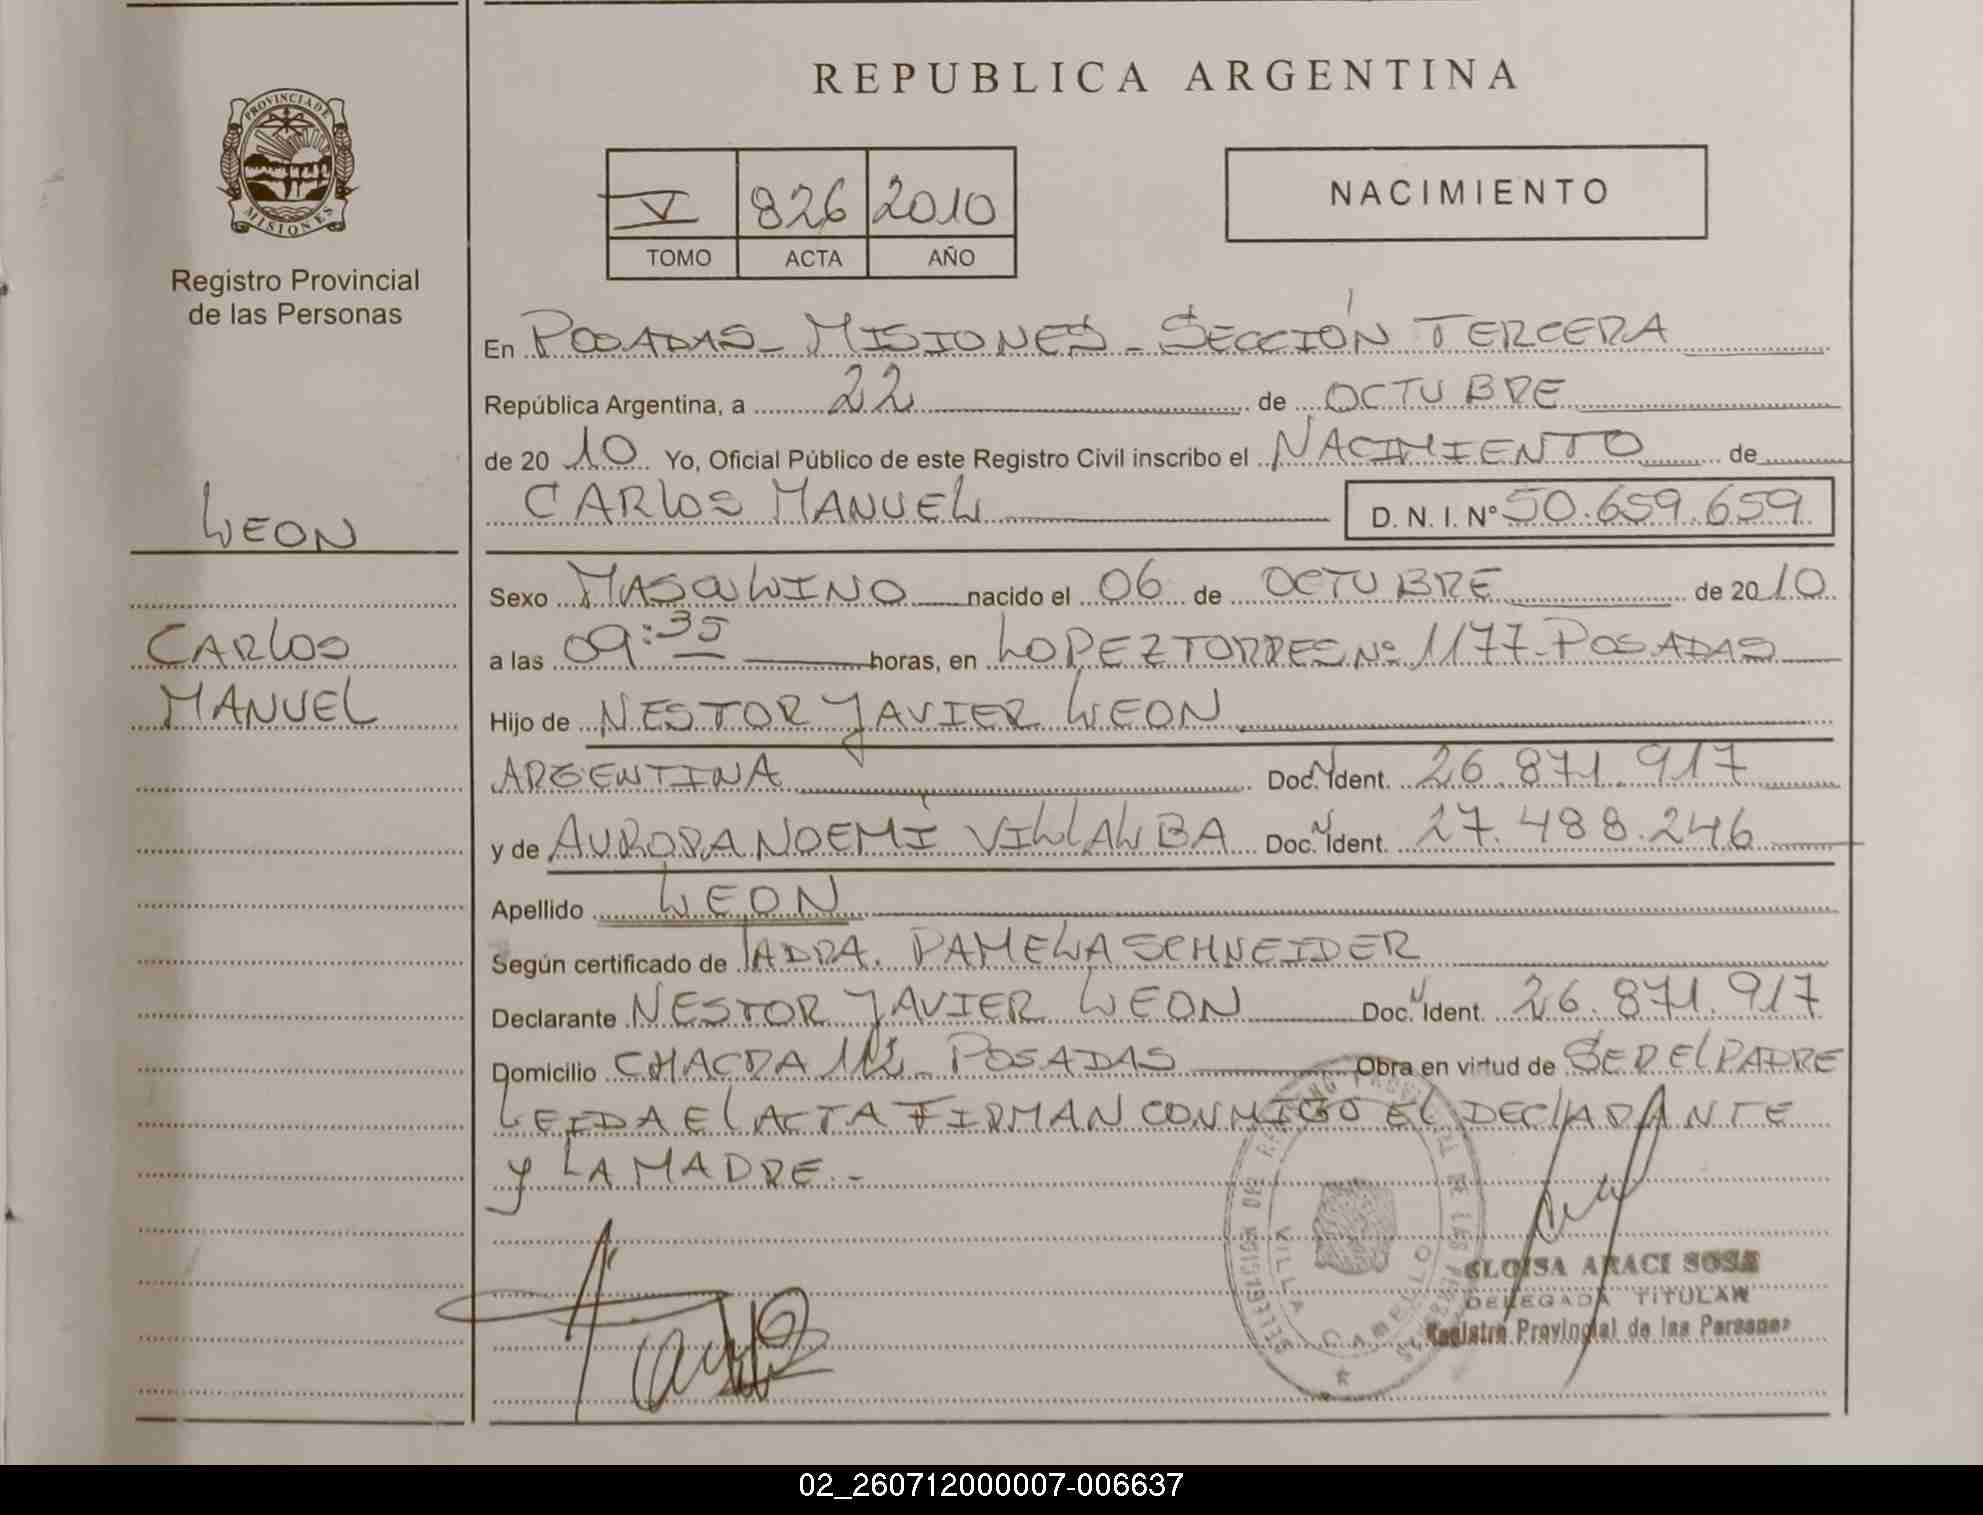 REPUBLICA ARGENTINA
PROVINCIA DE MISIONES
Registro Provincial
de las Personas
V 826 2010
TOMO ACTA AÑO
NACIMIENTO
En POSADAS - MISIONES - SECCIÓN TERCERA
República Argentina, a 22 de OCTUBRE
de 2010 Yo, Oficial Público de este Registro Civil inscribo el NACIMIENTO de
CARLOS MANUEL D. N. I. Nº 50.659.659
LEON
CARLOS
MANUEL
Sexo MASCULINO nacido el 06 de OCTUBRE de 2010
a las 09:35 horas, en LOPEZ TORRES Nº 1177 - POSADAS
Hijo de NESTOR JAVIER LEON
ARGENTINA Doc. Ident. 26.871.917
y de AURORA NOEMÍ VILLALBA Doc. Ident. 27.488.246
Apellido LEON
Según certificado de LA DRA. PAMELA SCHNEIDER
Declarante NESTOR JAVIER LEON Doc. Ident. 26.871.917
Domicilio CHACRA 112 - POSADAS Obra en virtud de SER EL PADRE
LEIDA EL ACTA FIRMAN CONMIGO EL DECLARANTE
Y LA MADRE.-
VILLA CABELLO
ELOISA ARACI SOSA
DELEGADA TITULAR
Registro Provincial de las Personas
02_260712000007-006637